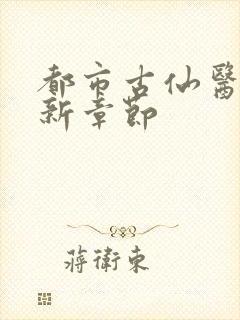 都市古仙醫
新章節
蔣衛東